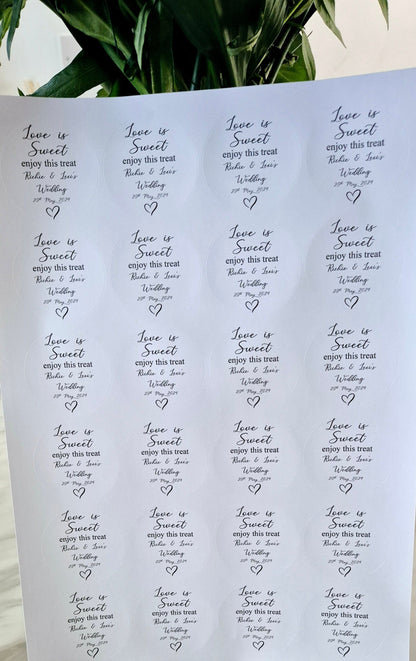 Love is
Sweet
enjoy this treat
Richie &
Wedding
May_2024
Love is
Sweet
enjoy this treat
Richie &
Wedding
May_2024
Love is
Sweet
enjoy this treat
Richie &
Wedding
May_2024
Love is
Sweet
enjoy this treat
Richie &
Wedding
May_2024
Love is
Sweet
enjoy this treat
Richie &
Wedding
May_2024
Love is
Sweet
enjoy this treat
Richie &
Wedding
May_2024
Love is
Sweet
enjoy this treat
Richie &
Wedding
May_2024
Love is
Sweet
enjoy this treat
Richie &
Wedding
May_2024
Love is
Sweet
enjoy this treat
Richie &
Wedding
May_2024
Love is
Sweet
enjoy this treat
Richie &
Wedding
May_2024
Love is
Sweet
enjoy this treat
Richie &
Wedding
May_2024
Love is
Sweet
enjoy this treat
Richie &
Wedding
May_2024
Love is
Sweet
enjoy this treat
Richie &
Wedding
May_2024
Love is
Sweet
enjoy this treat
Richie &
Wedding
May_2024
Love is
Sweet
enjoy this treat
Richie &
Wedding
May_2024
Love is
Sweet
enjoy this treat
Richie &
Wedding
May_2024
Love is
Sweet
enjoy this treat
Richie &
Wedding
May_2024
Love is
Sweet
enjoy this treat
Richie &
Wedding
May_2024
Love is
Sweet
enjoy this treat
Richie &
Wedding
May_2024
Love is
Sweet
enjoy this treat
Richie &
Wedding
May_2024
Love is
Sweet
enjoy this treat
Richie &
Wedding
May_2024
Love is
Sweet
enjoy this treat
Richie &
Wedding
May_2024
Love is
Sweet
enjoy this treat
Richie &
Wedding
May_2024
Love is
Sweet
enjoy this treat
Richie &
Wedding
May_2024